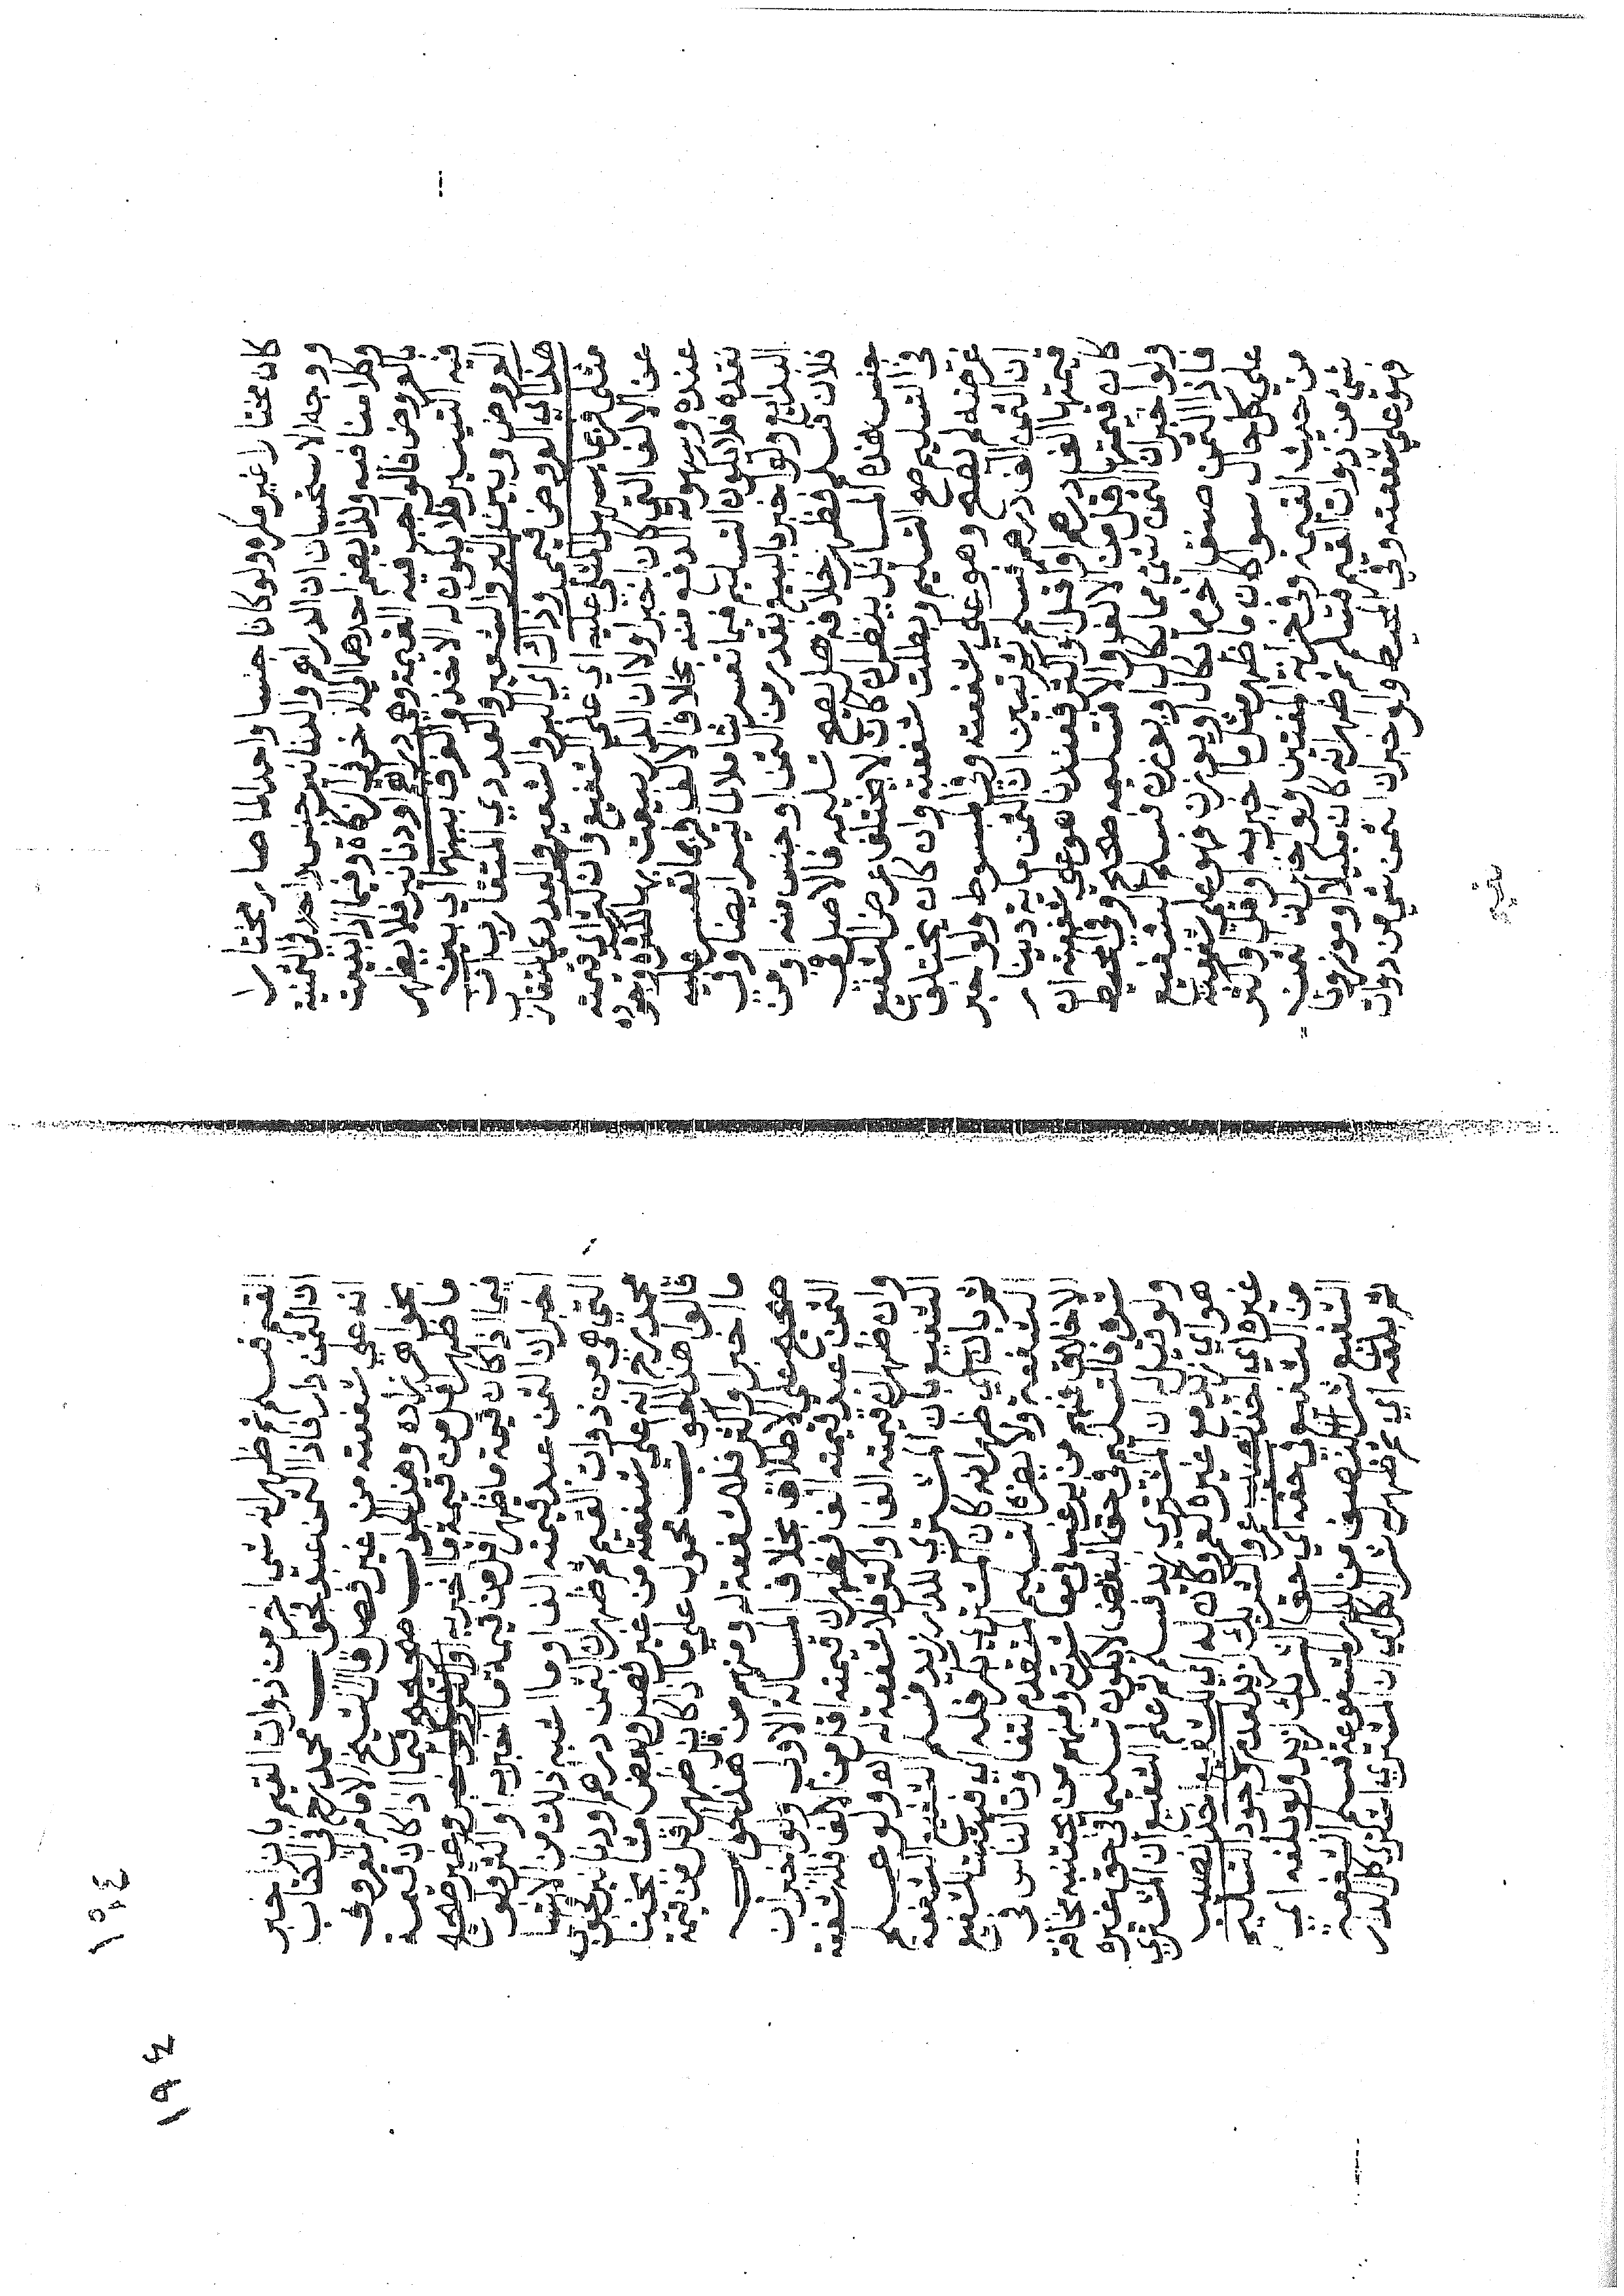 كان مختارا غير مكره ولو كانا جنسا واحدا لما صار مختارا
ووجه الاستحسان ان الدراهم والدنانير جنس واحد في الثمنية
وكلامنا فيه ولذا يضم احدهما الى الاخر في الزكاة وفيما اذا بيعت
بالعروض فالواجب فيه القيمة وهي دراهم او دنانير فلا يظهر
فيه التيسير فلا يكون له الاخذ والفرق بينهما اي بين
العروض وبين البر والشعير والعددي المتقارب ان
هذا اي العروض قيمي وذاك اي البر والشعير والعددي المتقارب
مثلي فربما يسهل المثلي عليه اي على الشفيع وان كثر اي قيمته
عن الالف التي كان اخبر اولا ان الدار بيعت بها لكثرة وجوده
عنده وسهولة الدفع منه بخلاف الالف فربما تعسر عليه
نقده فلا يكون التسليم فيما تعسر شاملا لما تيسر ايضا وفي
البدايع ولو اخبر بالبيع بقدر من الثمن او جنس منه او من
فلان فسلم فظهر خلافه هل يصح تسليمه فالاصل في
جنس هذه المسائل ينظر ان كان لا يختلف غرض الشفيع
في التسليم صح التسليم وبطلت شفعته وان كان يختلف
غرضه لم يصح وهو على شفعته وفي المبسوط ولو اخبر
ان الثمن الف درهم فسلم ثم تبين ان الثمن ماية دينار
قيمتها الف درهم او اقل او اكثر فعندنا هو على شفعته ان
كان قيمتها اقل من الالف والا فتسليمه صحيح وفي المحيط
ولو اخبر ان الثمن شي مما يكال او يوزن فسلم الشفيع
فاذا الثمن صنف اخر مما يكال او يوزن فهو على شفعته
على كل حال سوا كان ما ظهر مثل ما اخبر به او اقل او اكثر
من حيث القيمة وفي خزانة المفتين ولو اخبر انه بيعت
بشي من ذوات القيم فسلم ثم ظهر انه كان مكيلا او موزونا
فهو على شفعته وفي المحيط ولو اخبر ان الثمن شي من ذوات
القيم فسلم ثم ظهر انه شي اخر من ذوات القيم بان اخبر
ان الثمن دار فاذا الثمن عبد فجواب محمد رح في الكتاب
انه على شفعته من غير فصل قال شيخ الاسلام المعروف
بخواهر زاده وهذا الجواب صحيح فيما اذا كان قيمة
ما ظهر اقل من قيمة ما اخبر به
فيما اذا كان قيمة ما ظهر اقل من قيمة ما اخبر به او اكثر ولو
اخبر ان الثمن عبد قيمته الف او ما اشبه ذلك من الاشيا
التي هي من ذوات القيم ثم ظهر ان الثمن دراهم او دنانير فجواب
محمد رح انه على شفعته من غير فصل وبعض مشايخنا
قالوا هذا الجواب محمول على ما اذا كان ما ظهر اقل من قيمة
ما اخبر او اكثر فلا شفعة له ومنهم من قال هذا الجواب
صحيح على الاطلاق بخلاف المسالة الاولى ولو اخبر ان
الثمن عبد قيمته الف فظهر ان قيمته اقل من الالف فله الشفعة
وان ظهر ان قيمته الف او اكثر فلا شفعة له ولو علم
الشفيع بان المشتري للدار زيد فسلم الشفيع الشفعة
ثم بان اي ظهر انه كان المشتري بكر فله اي فيثبت للشفيع
الشفعة ولا يضره التسليم المتقدم لتفاوت الناس في
الاخلاق فمنهم من يرغب في معاشرته ومنهم من يجتنب مخافة
شره فالتسليم في حق البعض لا يكون تسليما في حق غيره
ولو قيل له ان المشتري زيد فسلم ثم علم الشفيع ان المشتري
هو اي زيد مع غيره كعمرو كان له اي للشفيع اخذ نصيب
غيره اي اخذ نصيب عمرو الشريك لزيد لعدم وجود التسليم
من الشفيع في حقه اي حق الشريك لزيد ولو بلغه اي
الشفيع شرا النصف من الدار المشفوعة فسلم الشفعة
ثم بلغه اي ثم ظهر له شرا الكل اي ان المشتري اشترى كل الدار
١٩٤